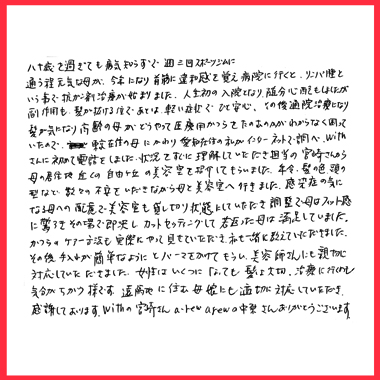 八十歳を過ぎても病気知らずで週三回スポーツジムに
通う程元気な母が、今年になり首筋に違和感を覚え病院に行くと、リンパ腫と
いう事で抗がん剤治療が始まりました。人生初の入院となり随分心配もしましたが
副作用も髪が抜ける位であとは軽い症状でひと安心、その後通院治療になり
髪が気になり高齢の母がどうやって医療用かつらをつくったものかわからなくて困って
いたので、在住の母にかわり愛知在住の私がインターネットで調べ、With
さんに初めて電話をしました。状況をすぐに理解していただき担当の宮崎さんから
母の居住地近くの自由が丘の美容室を紹介してもらいました。年令、髪の色、頭の
型などで数々の不安をいだきながら母と美容室へ行きました。感染症の気に
なる母への配慮で美容室も貸し切り状態にしていただき調整で母はフィット感
に驚きその場で即決しカットセッティングして若返った母は満足していました。
かつらのケアー方法も実際にやって見せていただき、私も一緒に教えていただきました。
その後手入れが簡単なようにとパーマをかけてもらい、美容師さんにも親切に
対応していただきました。女性はいくつになっても髪は大切、治療に行くのも
気分がちがう様です。遠隔地に住む母娘にも適切に対応していただき、
感謝しております。Withの宮崎さん a-new arewaの中里さんありがとうございます。